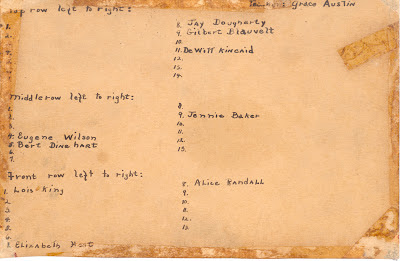 Top row left to right:
Teacher: Grace Austin
1.
2.
3.
4.
8. Jay Dougherty
9. Gilbert Blauvelt
10.
11. DeWitt Kincaid
12.
13.
14.
Middle row left to right:
1.
2.
3.
4. Eugene Wilson
5. Bert Dinehart
6.
7.
8.
9. Jennie Baker
10.
11.
12.
13.
Front row left to right:
1. Lois King
2.
3.
4.
5.
6.
7. Elizabeth
8. Alice Kandall
9.
10.
11.
12.
13.